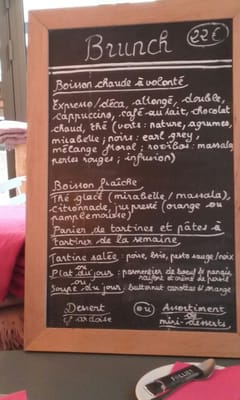 Brunch 22€
Boisson chaude à volonté
Expresso/déca, allongé, double,
cappuccino, café au lait, chocolat
chaud, thé (verts: nature, agrumes,
mirabelle; noirs: earl grey,
mélange floral; rooïbos: massala,
perles rouges; infusion)
Boisson fraîche
Thé glacé (mirabelle/massala),
citronnade, jus pressé (orange ou
pamplemousse)
Panier de tartines et pâtes à
tartiner de la semaine
Tartine salée: poire, brie, pesto sauge/noix
ou
Plat du jour: parmentier de boeuf & panais,
et crème de persil
ou
Soupe du jour: butternut carottes & orange
Dessert ou Assortiment
ardoise mini-desserts